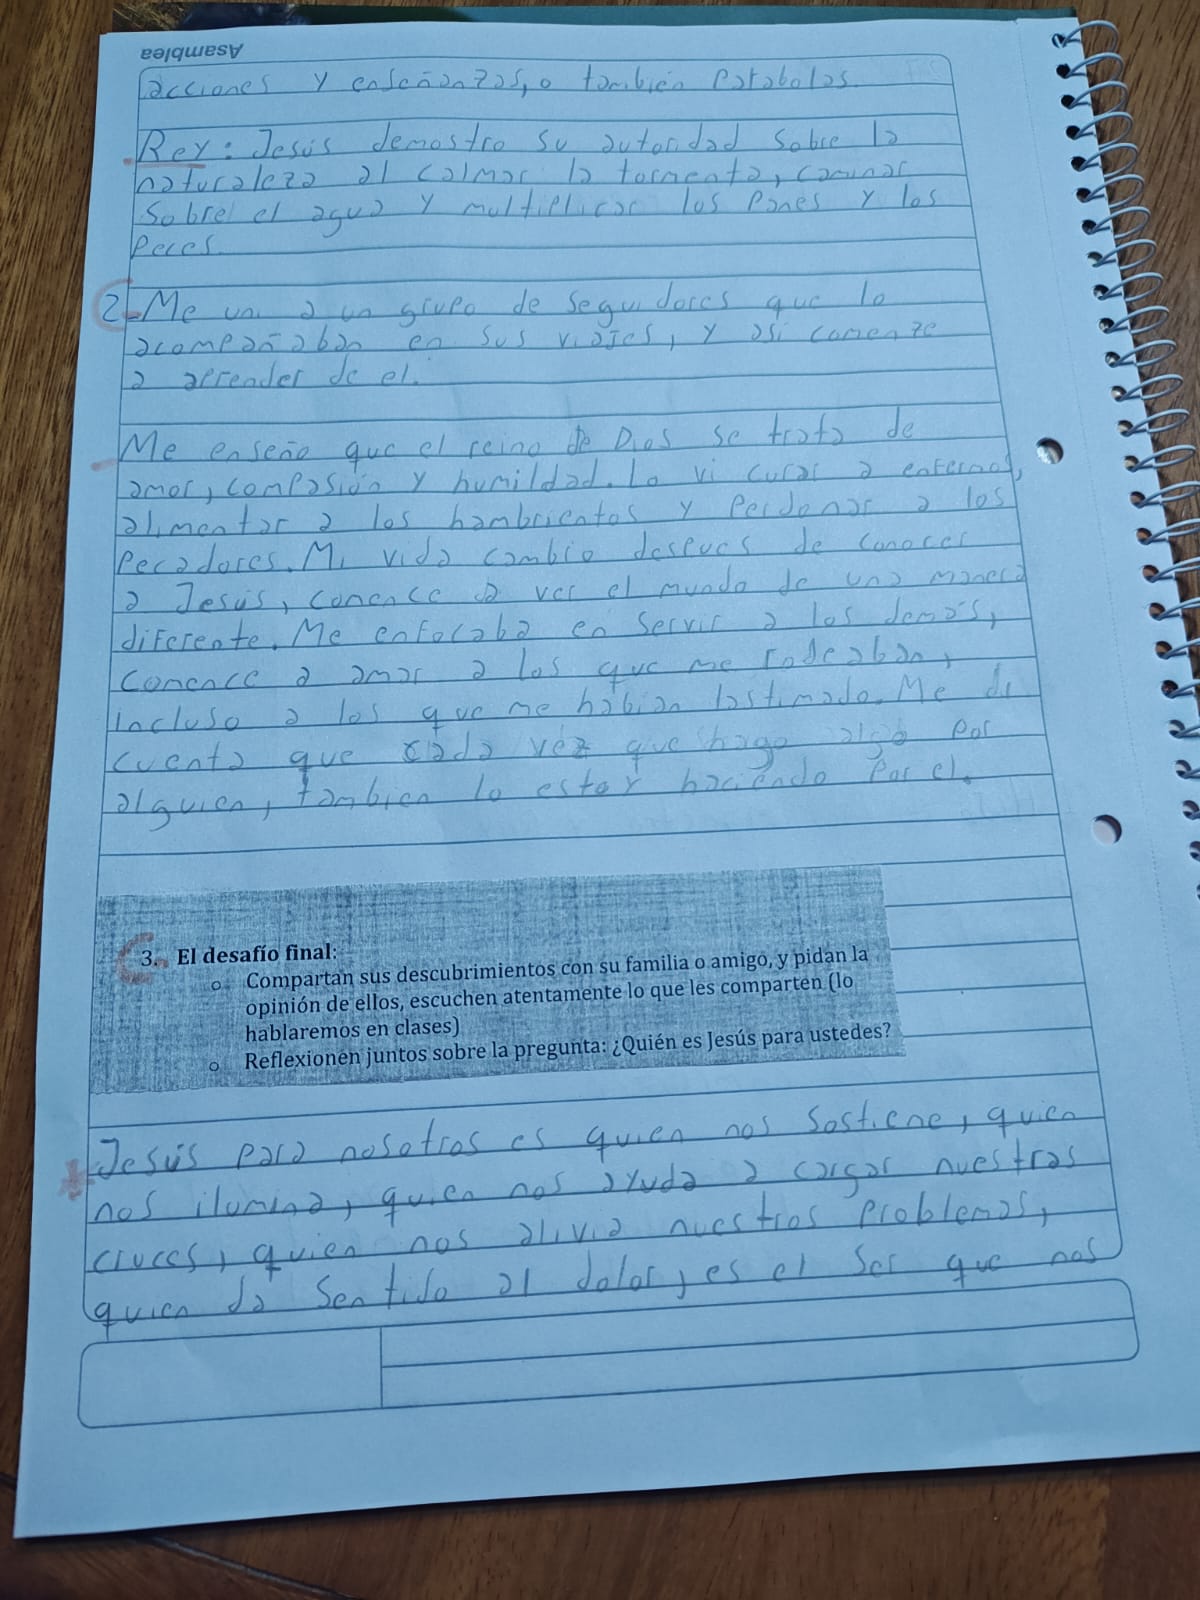 Asamblea
acciones y enseñanzas, o también Parabolas.
Rey: Jesús demostro su autoridad sobre la
naturaleza al calmar la tormenta, caminar
sobre el agua y multiplicar los Panes y los
Peces.
2- Me uni a un grupo de seguidores que lo
acompañaban en sus viajes, y asi comenze
a aprender de el.
Me enseño que el reino de Dios se trata de
amor, compasión y humildad. Lo vi curar a enfermos,
alimentar a los hambrientos y Perdonar a los
Pecadores. Mi vida cambio despues de conocer
a Jesús, comence a ver el mundo de una manera
diferente. Me enfocaba en servir a los demás,
comence a amar a los que me rodeaban,
incluso a los que me habian lastimado. Me di
cuenta que cada vez que hago algo por
alguien, tambien lo estoy haciendo por el.
3. El desafío final:
o Compartan sus descubrimientos con su familia o amigo, y pidan la
opinión de ellos, escuchen atentamente lo que les comparten (lo
hablaremos en clases)
o Reflexionen juntos sobre la pregunta: ¿Quién es Jesús para ustedes?
* Jesús para nosotros es quien nos sostiene, quien
nos ilumina, quien nos ayuda a cargar nuestras
cruces, quien nos alivia nuestros problemas,
quien da sentido al dolor, es el ser que nos